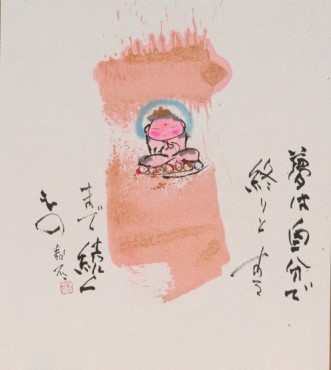 夢は自分で
終りとする
まで続く
もの